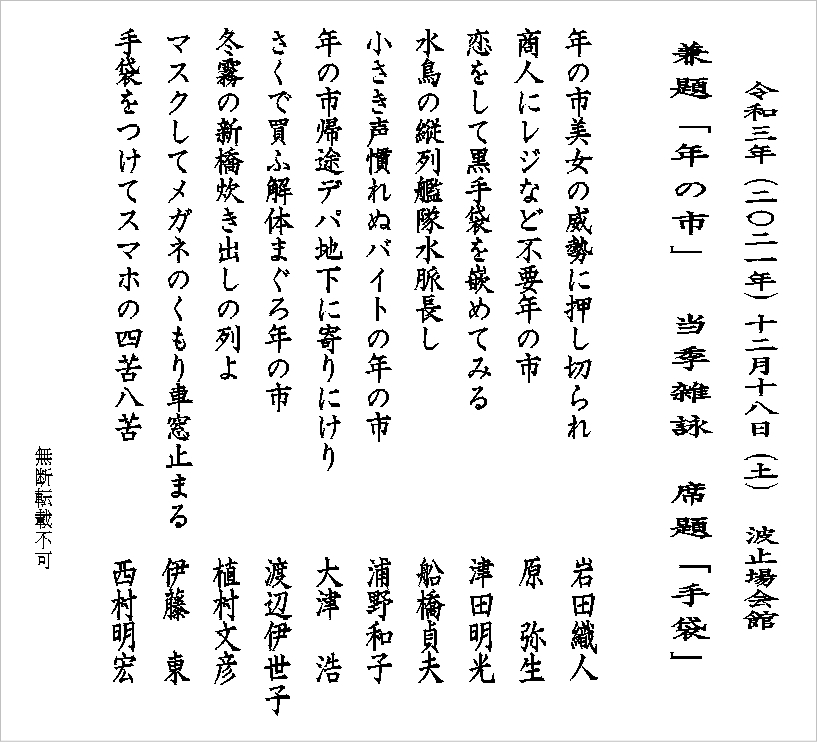 令和三年（二〇二一年）十二月十八日（土） 波止場会館
兼題「年の市」 当季雑詠 席題「手袋」
年の市美女の威勢に押し切られ 岩田織人
商人にレジなど不要年の市 原 弥生
恋をして黒手袋を嵌めてみる 津田明光
水鳥の縦列艦隊水脈長し 船橋貞夫
小さき声慣れぬバイトの年の市 浦野和子
年の市帰途デパ地下に寄りにけり 大津 浩
さくで買ふ解体まぐろ年の市 渡辺伊世子
冬霧の新橋炊き出しの列よ 植村文彦
マスクしてメガネのくもり車窓止まる 伊藤 東
手袋をつけてスマホの四苦八苦 西村明宏
無断転載不可